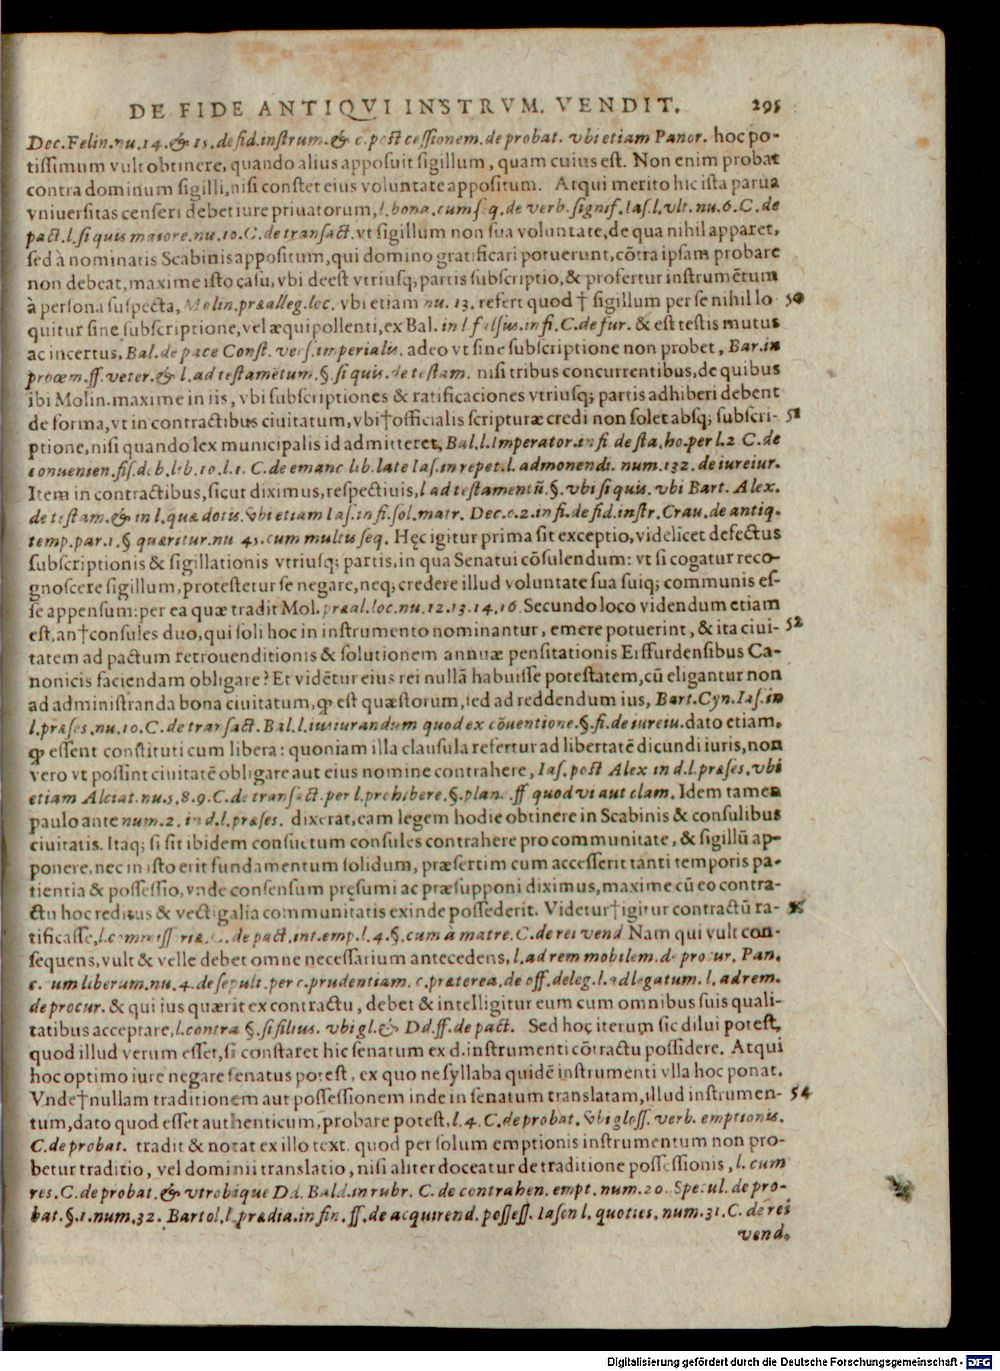 DE FIDE ANTIQVI INSTRVM. VENDIT. 295
Dec. Felin. nu. 14. & 15. de fid. instrum. & c. post cessionem. de probat. vbi etiam Panor. hoc po-
tissimum vult obtinere, quando alius apposuit sigillum, quam cuius est. Non enim probat
contra dominum sigilli, nisi constet eius voluntate appositum. Atqui merito hic ista parua
vniuersitas censeri debet iure priuatorum, l. bona. cum seq. de verb. signif. Ias. l. vlt. nu. 6. C. de
pact. l. si quis maiore. nu. 10. C. de transact. vt sigillum non sua voluntate, de qua nihil apparet,
sed à nominatis Scabinis appositum, qui domino gratificari potuerunt, cōtra ipsam probare
non debeat, maxime isto casu, vbi deest vtriusq; partis subscriptio, & profertur instrumētum
à persona suspecta, Molin. præalleg. loc. vbi etiam nu. 13. refert quod † sigillum per se nihil lo 50
quitur sine subscriptione, vel æquipollenti, ex Bal. in l falsus. in fi. C. de fur. & est testis mutus
ac incertus, Bal. de pace Const. vers. imperialis. adeo vt sine subscriptione non probet, Bar. in
proœm. ff. veter. & l. ad testamētum. §. si quis. de testam. nisi tribus concurrentibus, de quibus
ibi Molin. maxime in iis, vbi subscriptiones & ratificaciones vtriusq; partis adhiberi debent
de forma, vt in contractibus ciuitatum, vbi † officialis scripturæ credi non solet absq; subscri- 51
ptione, nisi quando lex municipalis id admitteret, Bal. l. Imperator. in fi. de sta. ho. per l. 2 C. de
conuenien. fis. deb. lib. 10. l. 1. C. de emanc lib. late Ias. in repet. l. admonendi. num. 132. de iureiur.
Item in contractibus, sicut diximus, respectiuis, l ad testamentū. §. vbi si quis. vbi Bart. Alex.
de testam. & in l. quæ dotis. vbi etiam Ias. in fi. sol. matr. Dec. c. 2. in fi. de fid. instr. Crau. de antiq.
temp. par. 1. § quæritur. nu 45. cum multis seq. Hęc igitur prima sit exceptio, videlicet defectus
subscriptionis & sigillationis vtriusq; partis, in qua Senatui cōsulendum: vt si cogatur reco-
gnoscere sigillum, protestetur se negare, neq; credere illud voluntate sua suiq; communis es-
se appensum: per ea quæ tradit Mol. præal. loc. nu. 12. 13. 14. 16 Secundo loco videndum etiam
est, an † consules duo, qui soli hoc in instrumento nominantur, emere potuerint, & ita ciui- 52
tatem ad pactum retrouenditionis & solutionem annuæ pensitationis Erffurdensibus Ca-
nonicis faciendam obligare? Et vidētur eius rei nullā habuisse potestatem, cū eligantur non
ad administranda bona ciuitatum, ꝙ est quæstorum, sed ad reddendum ius, Bart. Cyn. Ias. in
l. præses. nu. 10. C. de transact. Bal. l. iusiurandum quod ex cōuentione. §. fi. de iureiu. dato etiam,
ꝙ essent constituti cum libera: quoniam illa clausula refertur ad libertatē dicundi iuris, non
vero vt possint ciuitatē obligare aut eius nomine contrahere, Ias. post Alex in d. l. præses. vbi
etiam Alciat. nu. 5. 8. 9. C. de transact. per l. prohibere. §. plane. ff quod vi aut clam. Idem tamen
paulo ante num. 2. in d. l. præses. dixerat, eam legem hodie obtinere in Scabinis & consulibus
ciuitatis. Itaq; si sit ibidem consuetum consules contrahere pro communitate, & sigillū ap-
ponere, nec in isto erit fundamentum solidum, præsertim cum accesserit tanti temporis pa-
tientia & possessio, vnde consensum pręsumi ac præsupponi diximus, maxime cū eo contra-
ctu hoc reditus & vectigalia communitatis exinde possederit. Videtur † igitur contractū ra-
tificasse, de pact. int. emp. l. 4. §. cum à matre. C. de rei vend. Nam qui vult con-
sequens, vult & velle debet omne necessarium antecedens, l. ad rem mobilem. de procur. Pan.
c. cum liberum. nu. 4. de sepult. per c. prudentiam. c. præterea. de off. deleg. l. ad legatum. l. ad rem.
de procur. & qui ius quærit ex contractu, debet & intelligitur eum cum omnibus suis quali-
tatibus acceptare, l. contra §. si filius. vbi gl. & Dd. ff. de pact. Sed hoc iterum sic dilui potest,
quod illud verum esset, si constaret hic senatum ex d. instrumenti cōtractu possidere. Atqui
hoc optimo iure negare senatus potest, ex quo ne syllaba quidē instrumenti vlla hoc ponat.
Vnde † nullam traditionem aut possessionem inde in senatum translatam, illud instrumen- 54
tum, dato quod esset authenticum, probare potest, l. 4. C. de probat. vbi gloss. verb. emptionis.
C. de probat. tradit & notat ex illo text. quod per solum emptionis instrumentum non pro-
betur traditio, vel dominii translatio, nisi aliter doceatur de traditione possessionis, l. cum
res. C. de probat. & vtrobique Dd. Bald. in rubr. C. de contrahen. empt. num. 20. Specul. de pro-
bat. §. 1. num. 32. Bartol. l. prædia. in fin. ff. de acquirend. possess. Iason l. quoties. num. 31. C. de rei
vend.
Digitalisierung gefördert durch die Deutsche Forschungsgemeinschaft - DFG